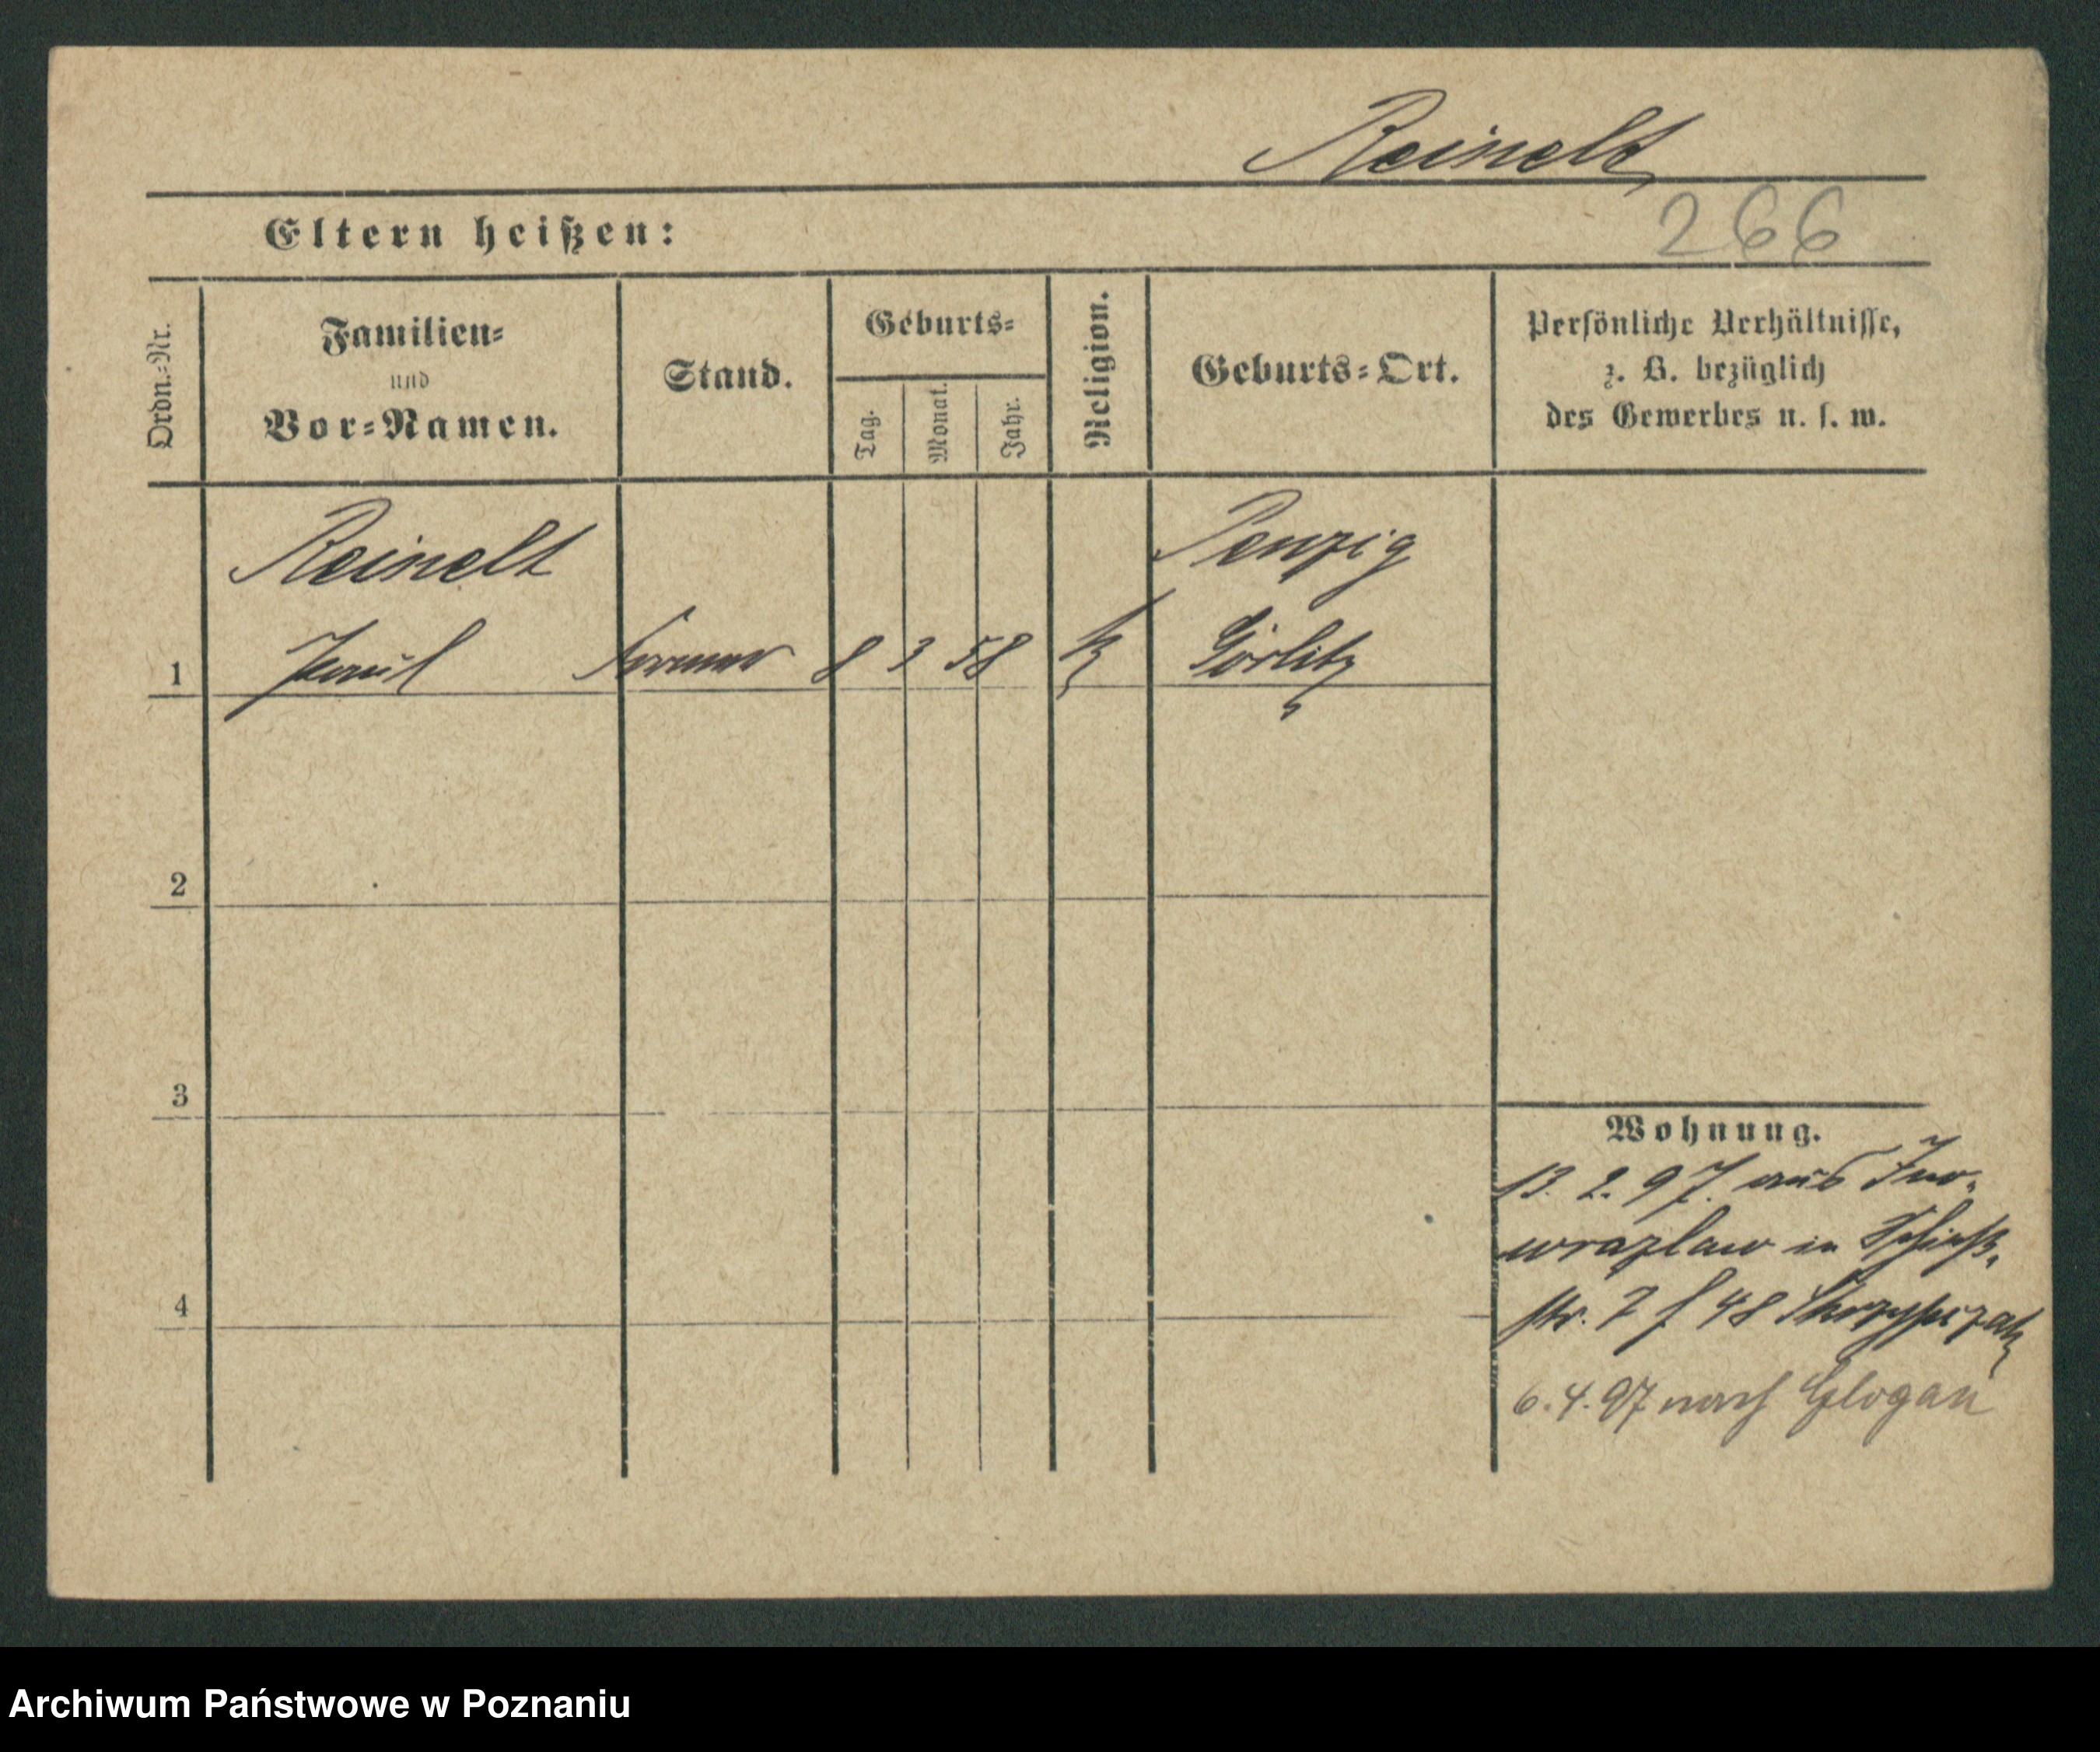 Reinelt
Eltern heißen:
266
Ordn.-Nr.
Familien-
und
Vor-Namen.
Stand.
Geburts-
Tag.
Monat.
Jahr.
Religion.
Geburts-Ort.
Persönliche Verhältnisse,
z. B. bezüglich
des Gewerbes u. s. w.
Reinelt
Penzig
1 Paul 8 3 58 Görlitz
2
3
4
Wohnung.
13. 2. 97. aus Ino-
wrazlaw in Schieß-
str. 7
6.4.97 nach Glogau
Archiwum Państwowe w Poznaniu